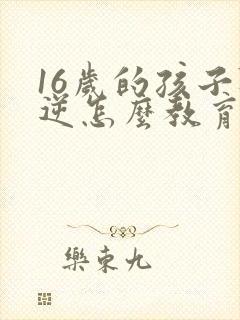 16歲的孩子
逆怎麼教育
樂東九